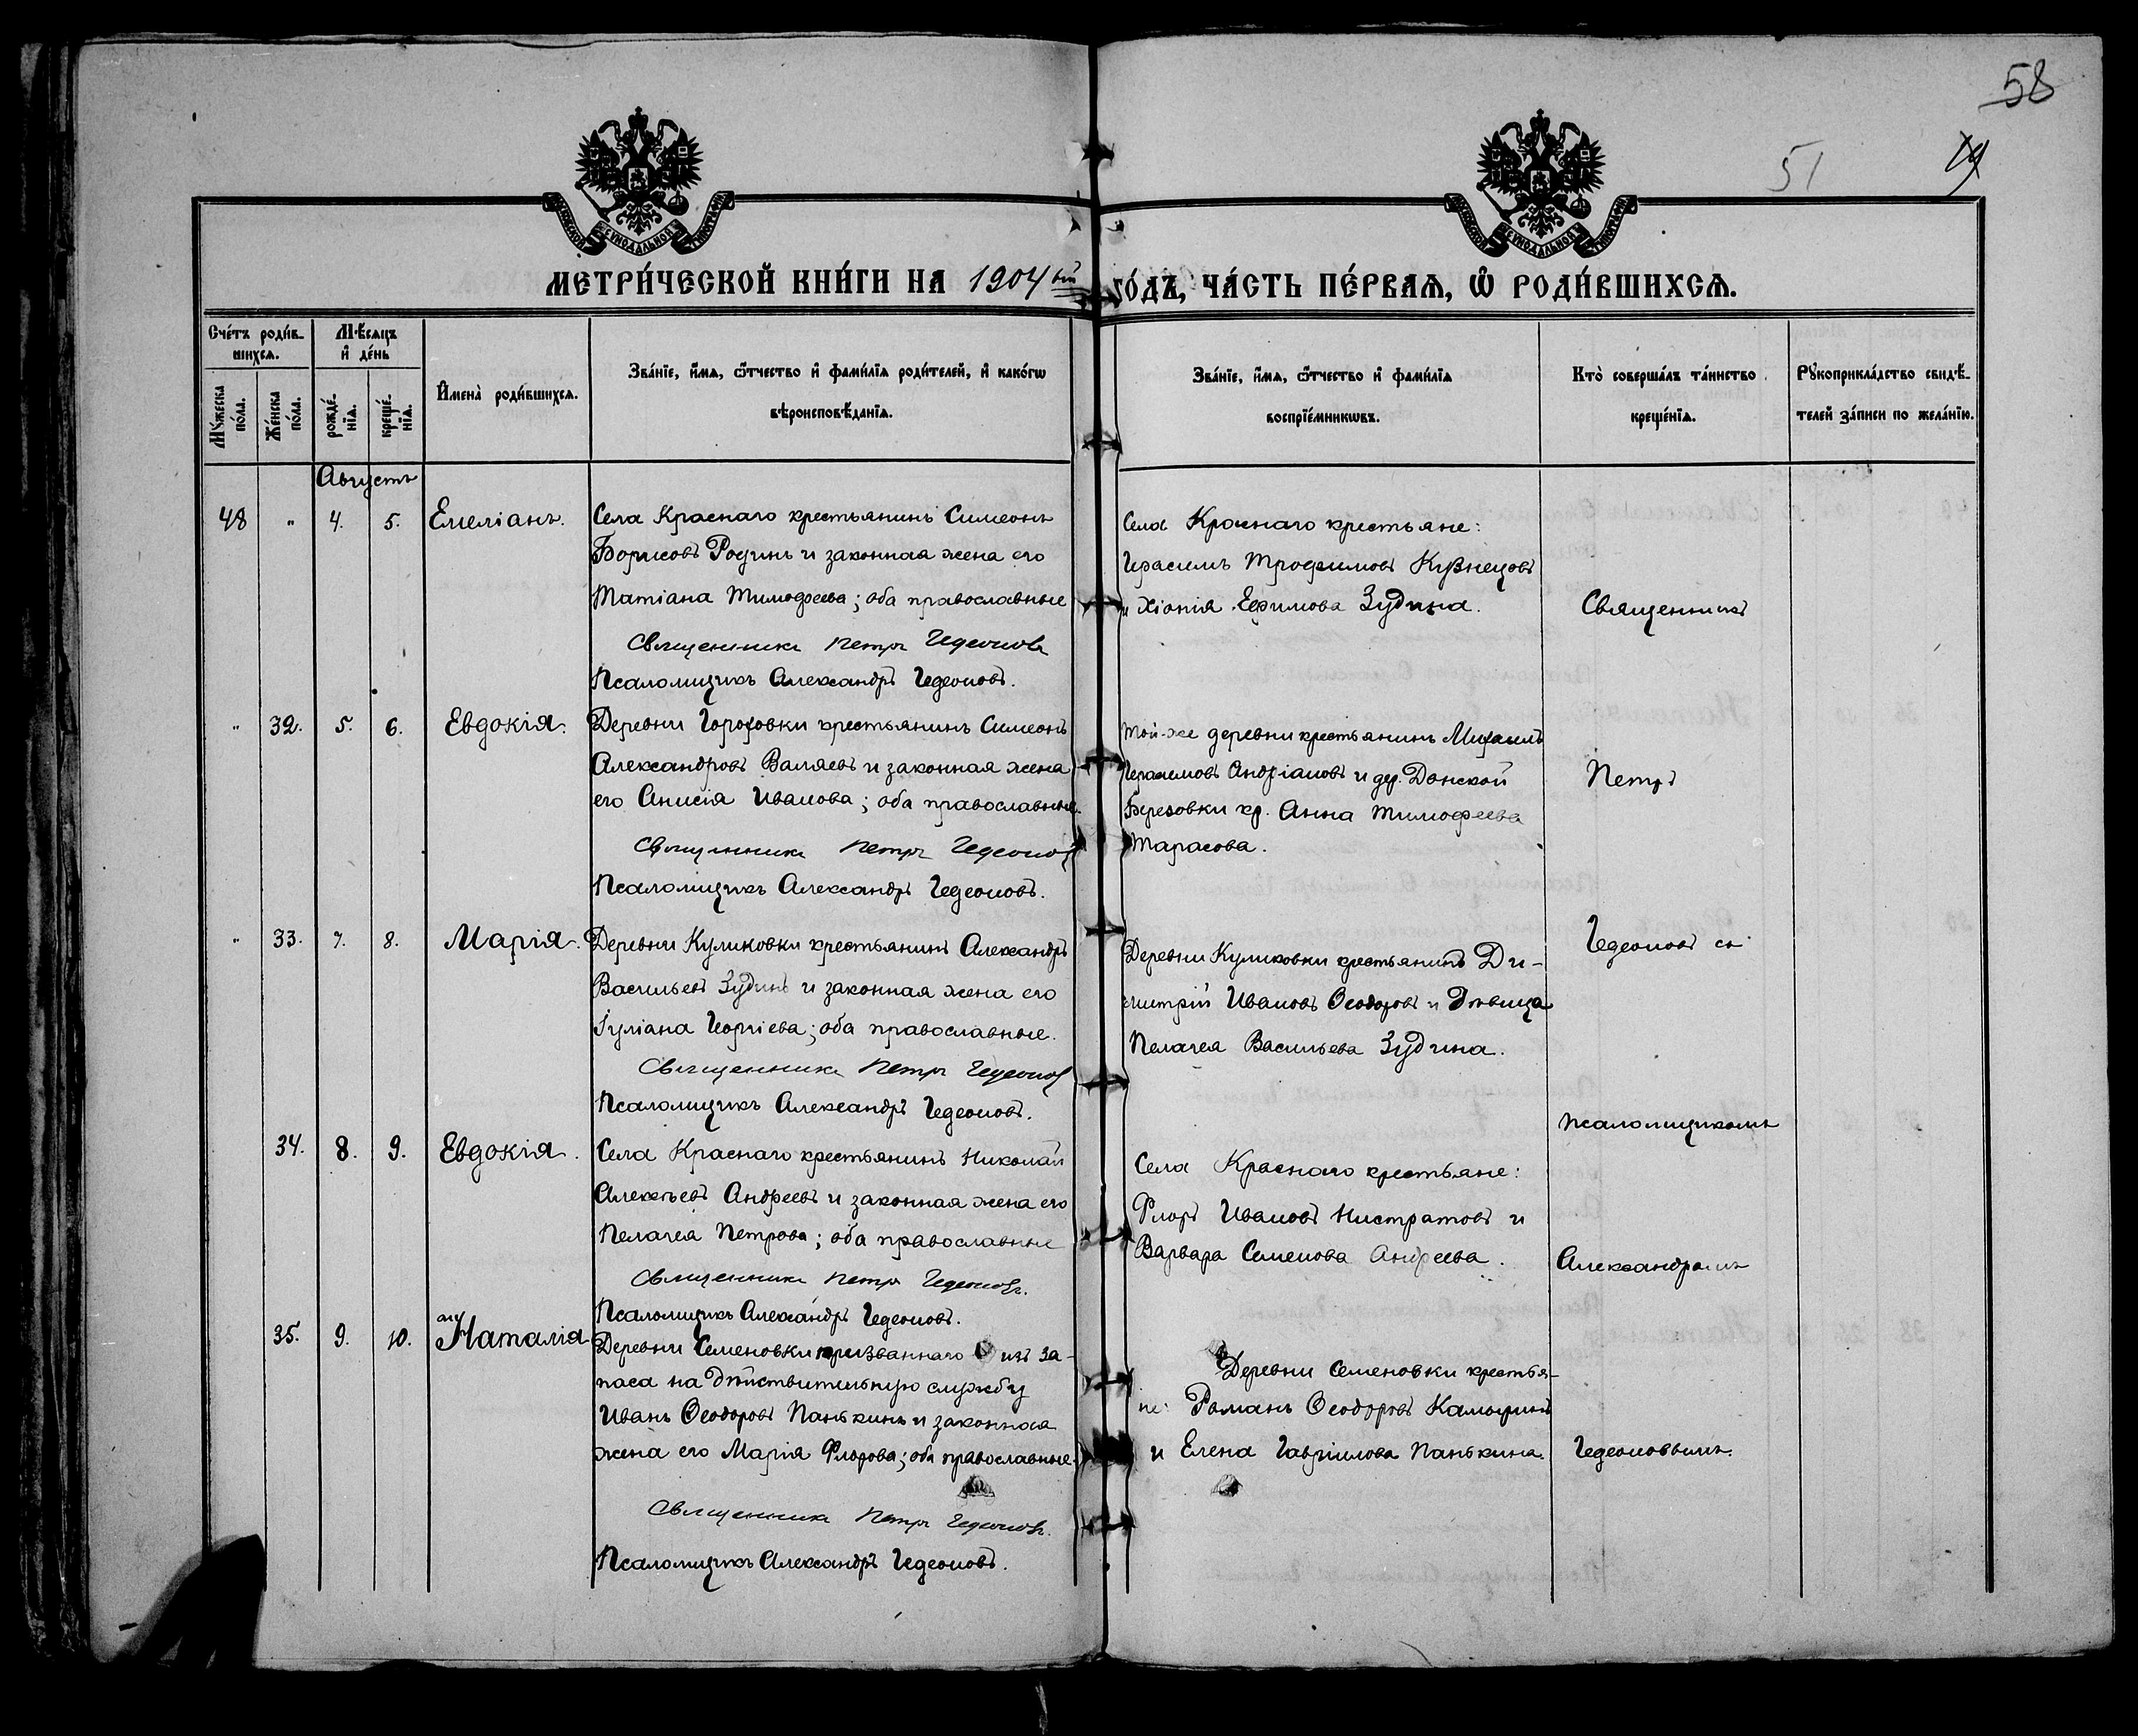 58
51
19
МЕТРИ́ЧЕСКОЙ КНИ́ГИ НА 1904 ый ГО́ДЪ, ЧА́СТЬ ПЕ́РВАѦ, Ѡ҆ РОДИ́ВШИХСѦ.
Сче́тъ роди́в-
шихсѧ.
Мѣ́сѧцъ
и҆ де́нь
Мꙋ́жеска
по́ла.
Же́нска
по́ла.
рожде́-
нїѧ.
креще́-
нїѧ.
И҆мена̀ роди́вшихсѧ.
Зва́нїе, и҆́мѧ, ѻ҆́тчество и҆ фами́лїѧ роди́телей, и҆ како́гѡ
вѣроисповѣ́данїѧ.
Зва́нїе, и҆́мѧ, ѻ҆́тчество и҆ фами́лїѧ
воспрїе́мникѡвъ.
Кто̀ соверша́лъ та́инство
креще́нїѧ.
Рꙋкоприкла́дство свидѣ́-
телей за́писи по жела́нїю.
Августъ
48 " 4. 5. Емеліанъ.
Села Краснаго крестьянинъ Симеонъ
Борисовъ Родинъ и законная жена его
Татіана Тимофеева; оба православные
Священникъ Петръ Гедеоновъ
Псаломщикъ Александръ Гедеоновъ.
Села Краснаго крестьяне:
Герасимъ Трофимовъ Кузнецовъ
и Хіонія Ефимова Зудина.
" 32. 5. 6. Евдокія.
Деревни Гороховки крестьянинъ Симеонъ
Александровъ Валяевъ и законная жена
его Анисія Иванова; оба православные.
Священникъ Петръ Гедеоновъ
Псаломщикъ Александръ Гедеоновъ.
Той-же деревни крестьянинъ Михаилъ
Герасимовъ Андріановъ и дер. Донской
Березовки кр. Анна Тимофеева
Тарасова.
" 33. 7. 8. Марія.
Деревни Куликовки крестьянинъ Александръ
Васильевъ Зудинъ и законная жена его
Іуліана Георгіева; оба православные.
Священникъ Петръ Гедеоновъ
Псаломщикъ Александръ Гедеоновъ.
Деревни Куликовки крестьянинъ Ди-
митрій Ивановъ Ѳеодоровъ и дѣвица
Пелагея Васильева Зудина.
34. 8. 9. Евдокія.
Села Краснаго крестьянинъ Николай
Алексѣевъ Андреевъ и законная жена его
Пелагея Петрова; оба православные
Священникъ Петръ Гедеоновъ.
Псаломщикъ Александръ Гедеоновъ.
Села Краснаго крестьяне:
Флоръ Ивановъ Нистратовъ и
Варвара Семенова Андреева.
35. 9. 10. Наталія
Деревни Семеновки призваннаго изъ за-
паса на дѣйствительную службу
Иванъ Ѳеодоровъ Панькинъ и законная
жена его Марія Флорова; оба православные.
Священникъ Петръ Гедеоновъ.
Псаломщикъ Александръ Гедеоновъ.
Деревни Семеновки крестья-
не: Романъ Ѳеодоровъ
и Елена Гавріилова Панькина.
Священникъ
Петръ
Гедеоновъ съ
псаломщикомъ
Александромъ
Гедеоновымъ.